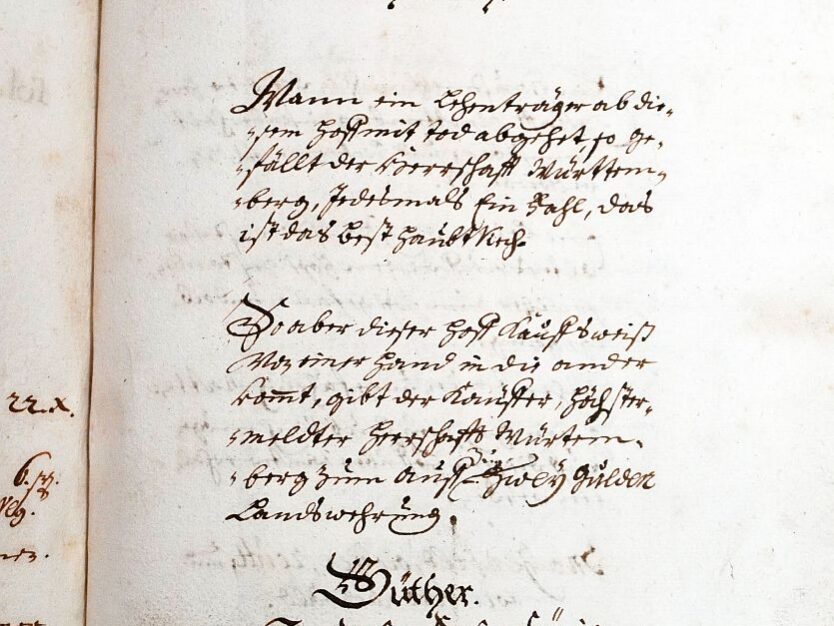 Wann ein Lehenträger ab die-
-sem Hoff mit tod abgehet, so ge-
-fällt der Herrschafft Württem-
-berg, Jedesmals Ein Fahl, das
ist das best Haubt Vich.
So aber dieser Hoff Kauffsweiß
Von einer Hand in die ander
kom̄t, gibt der Kauffer, Höchster-
-meldter Herrschafft Würtem-
-berg zum Auff Zwey Gulden
Landswehrung.
Güther.
22. X.
6.